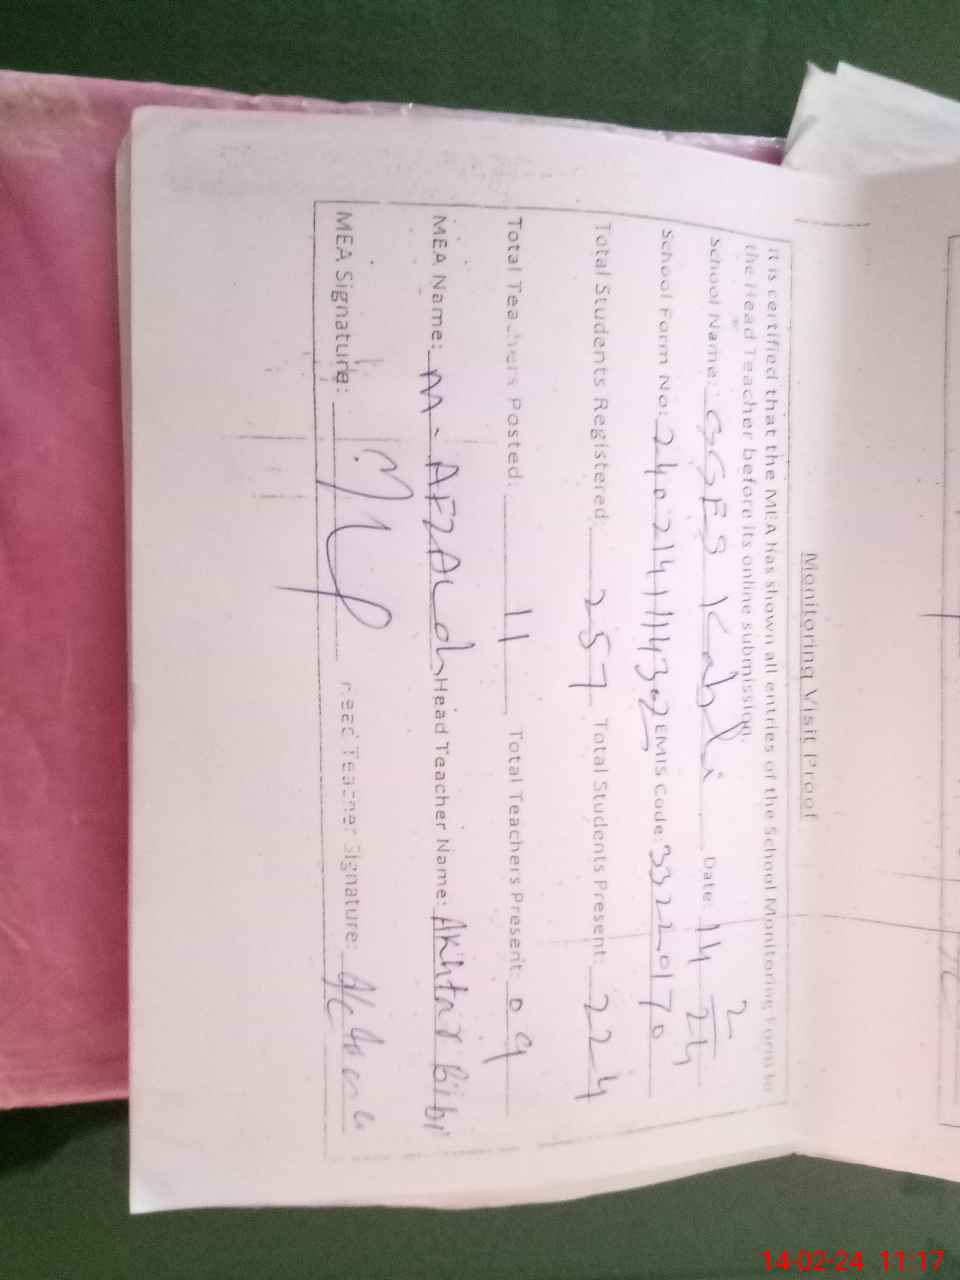 Monitoring Visit Proof
It is certified that the MEA has shown all entries of the School Monitoring Form to
the Head Teacher before its online submission.
School Name: GGES Kabli Date: 14/2/24
School Form No: 2402141114302 EMIS Code: 33220170
Total Students Registered: 257 Total Students Present: 224
Total Teachers Posted: 11 Total Teachers Present: 09
MEA Name: M. AFZAL Head Teacher Name: Akhtar Bibi
MEA Signature: Head Teacher Signature:
14-02-24 11:17